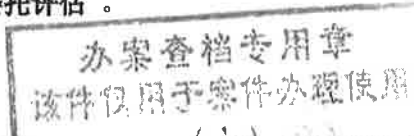 托评估。
办案查档专用章
该件仅用于案件办理使用
( 1 )